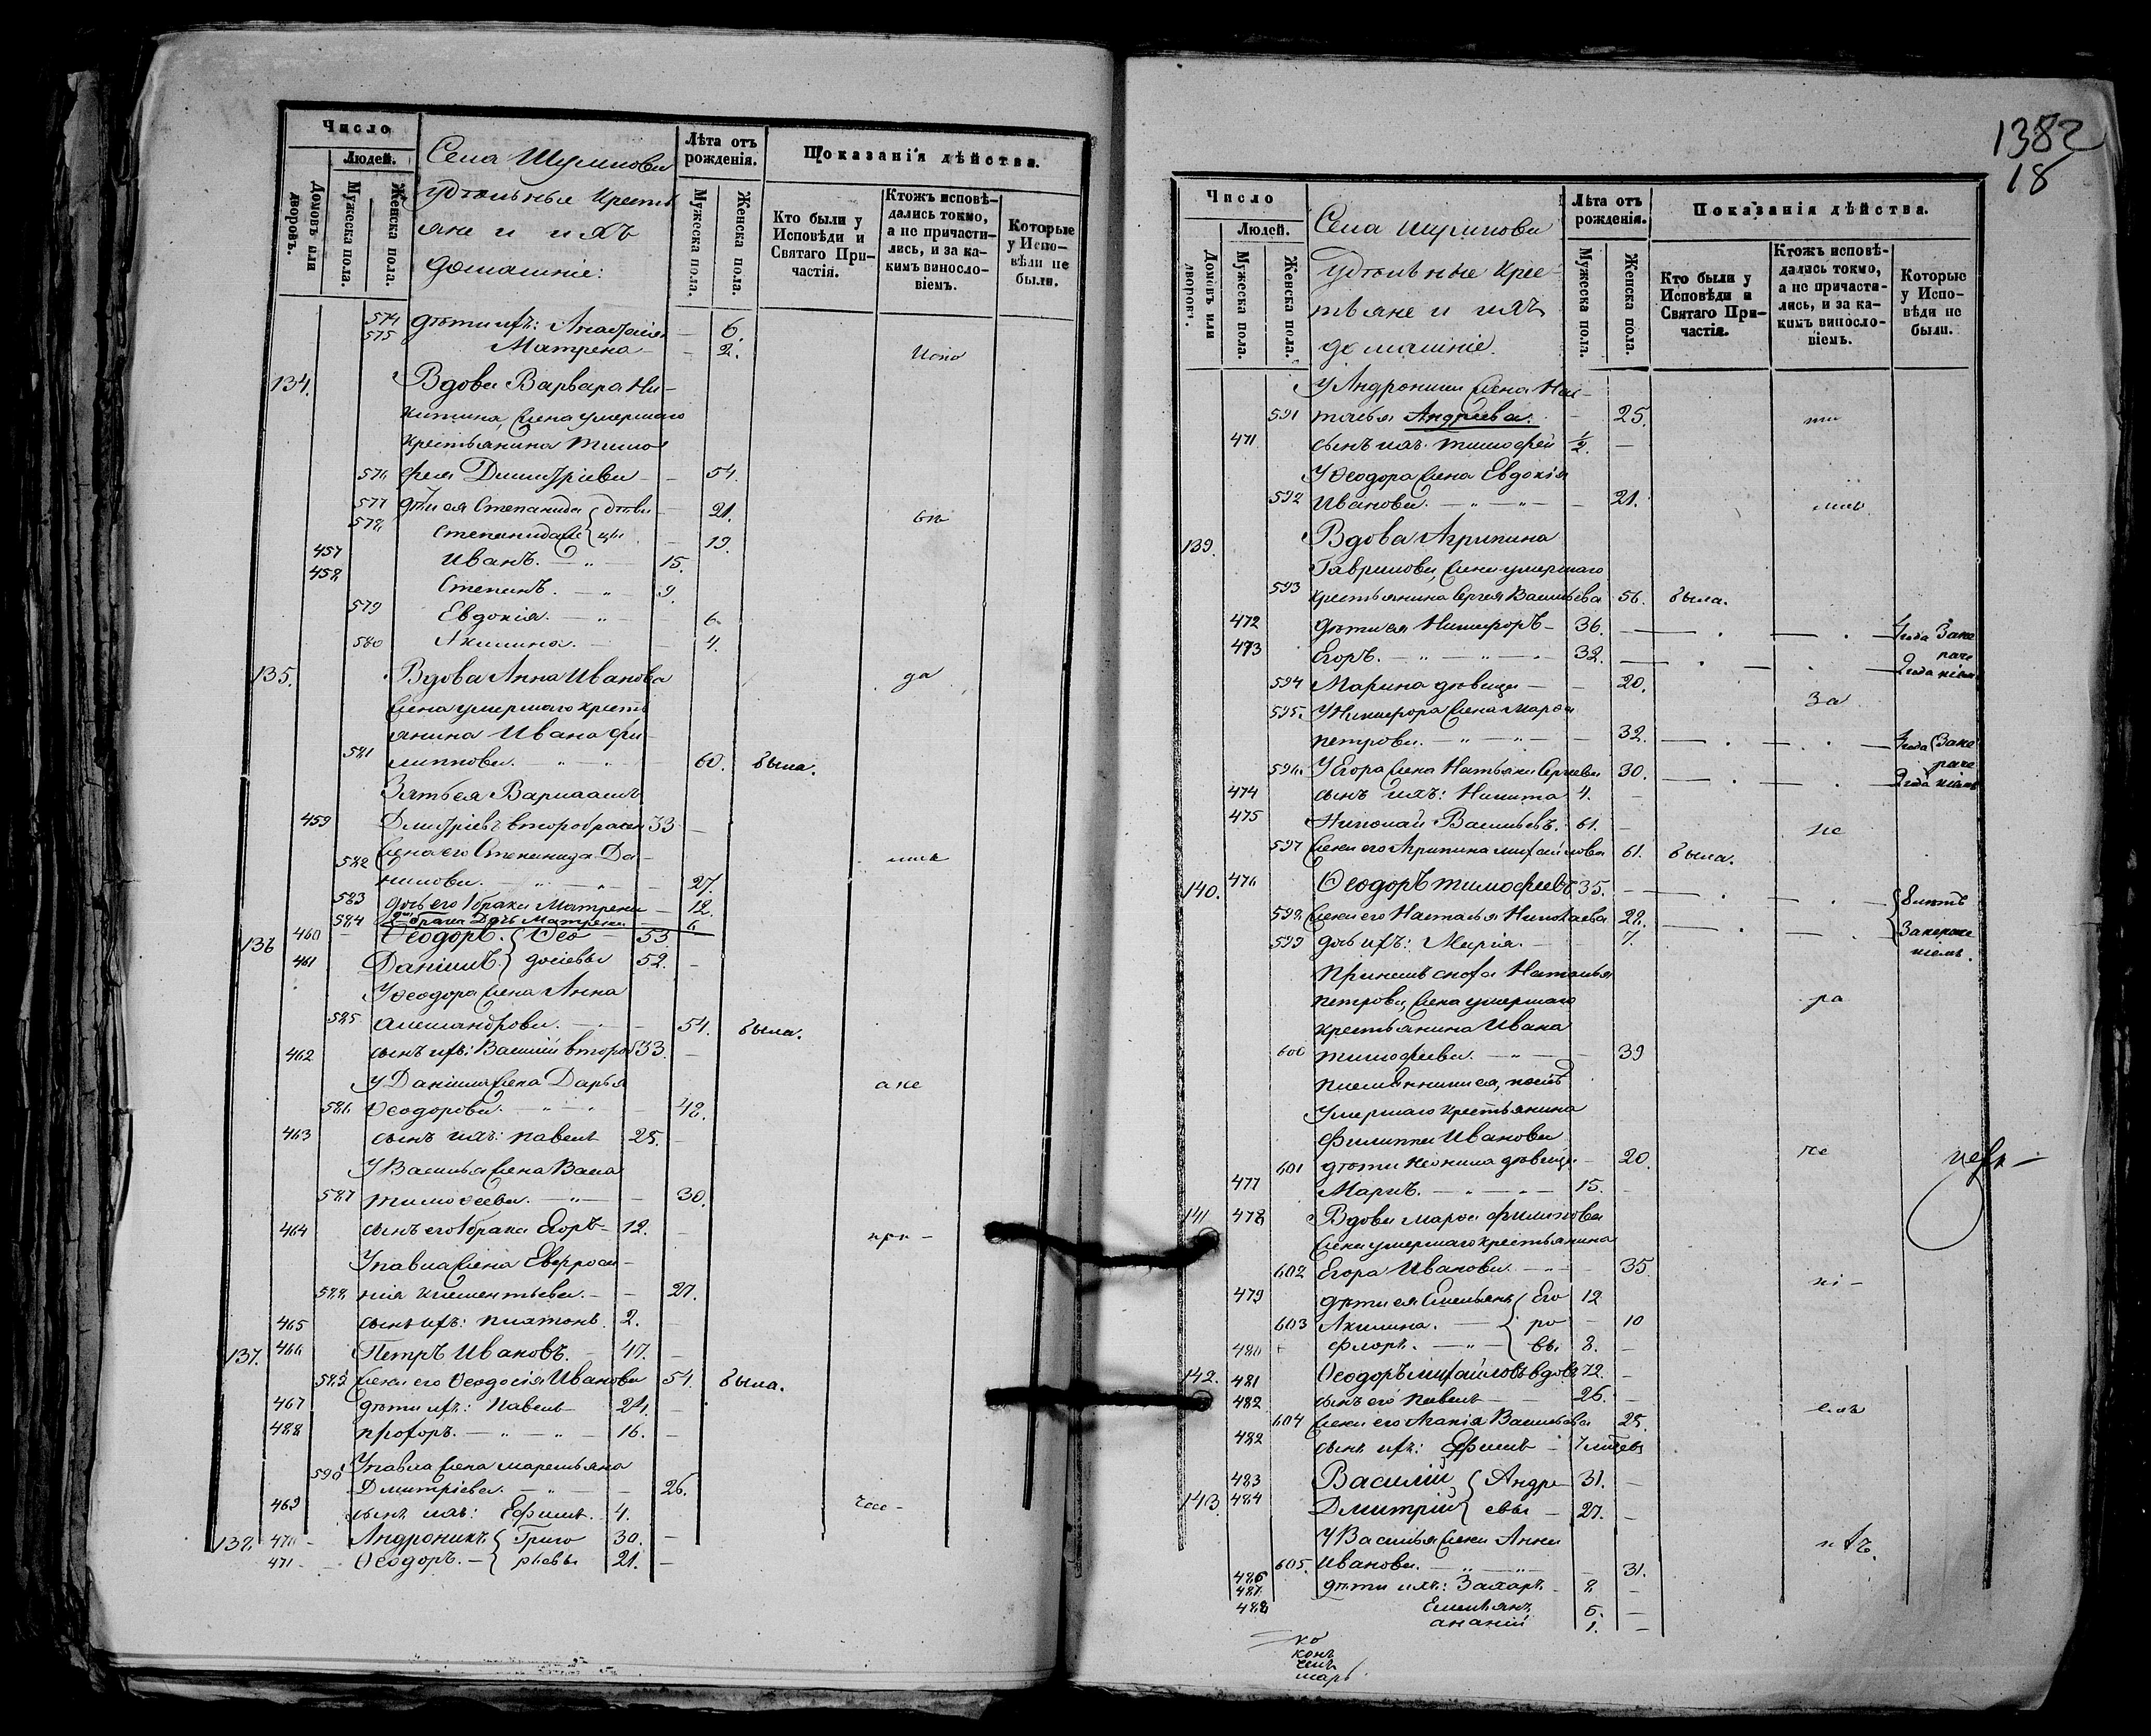 Число
Людей.
Домовъ или дворовъ.
Мужеска пола.
Женска пола.
Села Шумнова
удѣльные кресть
яне и ихъ
домашніе:
Лѣта отъ рожденія.
Мужеска пола.
Женска пола.
Показанія дѣйства.
Кто были у Исповѣди и Святаго Причастія.
Ктожъ исповѣдались токмо, а не причастились, и за какимъ винословіемъ.
Которые у Исповѣди не были.
574 дѣти ихъ: Анастасія — 6.
575 Матрена — 2.
Испо
134. Вдова Варвара Ни-
китина, жена умершаго
крестьянина Тимо
576 фея Димитріева — 54.
577 дѣти ея Степанида дѣви 21.
578 Степанида же цы — 19.
вѣ
457 Иванъ. — 15.
458 Степанъ. — 9.
579 Евдокія. — 6.
580 Акилина. — 4.
135. Вдова Анна Иванова
да
жена умершаго кресть
янина Ивана Фи-
581 липпова. — 60. была.
Зять ея Варлаамъ
459 Дмитріевъ второбрачн 33 —
жена его Степанида Да-
582 нилова. — 27.
583 дочь его 1 брака Матрена — 12.
584 2го брака Дочь Матрена 6
136 460 Ѳеодоръ. Ѳео 53.
461 Даніилъ. досіевы 52. —
У Ѳеодора жена Анна
585 Александрова. — 54. была.
462 сынъ ихъ: Василій второб 33. —
У Даніила жена Дарья
а не
586 Ѳеодорова. — 48.
463 сынъ ихъ: Павелъ 25. —
У Василья жена Васса
587 Тимоѳеева. — 30.
464 сынъ его 1 брака Егоръ — 12. —
при —
У Павла жена Евфроси-
588 нія Климентьева. — 27.
465 сынъ ихъ: Платонъ. 2. —
137. 466 Петръ Ивановъ. — 47. —
589 жена его Ѳеодосія Иванова 54. была.
467 дѣти ихъ: Павелъ 24. —
488 Прохоръ. — 16. —
У Павла жена Маремьяна
590 Дмитріева. — 26.
469 сынъ ихъ: Ефимъ. 4.
138. 470 Андроникъ Григо 30. —
471 Ѳеодоръ. — рьевы 21. —
1382
18
Число
Людей.
Домовъ или дворовъ.
Мужеска пола.
Женска пола.
Села Шумнова
Удѣльные крес-
тьяне и ихъ
домашніе.
Лѣта отъ рожденія.
Мужеска пола.
Женска пола.
Показанія дѣйства.
Кто были у Исповѣди и Святаго Причастія.
Ктожъ исповѣдались токмо, а не причастились, и за какимъ винословіемъ.
Которые у Исповѣди не были.
У Андроника жена На-
591 талья Андреева. — 25.
471 сынъ ихъ: Тимофей 1/2. —
У Ѳеодора жена Евдокія
592 Иванова. — 21.
139. Вдова Агрипина
Гаврилова, жена умершаго
593 крестьянина Сергея Васильева 56. была.
472 дѣти ея Никифоръ — 36. — 4 года За не
раче
473 Егоръ. — 32. — 2 года ніемъ
594 Марина дѣвица — 20.
за
595. У Никифора жена Марѳа
Петрова. — 32. — 4 года За не
раче
596 У Егора жена Наталья Сергеева 30. — 2 года ніемъ
474 сынъ ихъ: Никита 4. —
475 Николай Васильевъ. 61. —
не
597 жена его Агрипина Михайлова 61. была.
140. 476 Ѳеодоръ Тимофеевъ 35. — 8 лѣтъ
598 жена его Наталья Николаева 28. — За нераче
599 дочь ихъ: Марія. — 7. ніемъ.
Петрова, жена умершаго
ра
крестьянина Ивана
600 Тимофеева. — 39
умершаго крестьянина
Филиппа Иванова
че
601 дѣти Неонила дѣвица — 20.
477 Маркъ. — 15. —
141 478 Вдова Марѳа Филипова
жена умершаго крестьянина
602 Егора Иванова. — 35.
ні —
479 дѣти ея Емельянъ Его 12
603 Акилина. — ро — 10
480 Флоръ. — вы 8. —
142. 481 Ѳеодоръ Михайловъ вдовъ 72. —
482 сынъ его Павелъ — 26. —
емъ
604 жена его Агапія Васильева 25
482 сынъ ихъ: Ефимъ — 7 мѣсяц
483 Василій Андре 31. —
143 484 Дмитрій евы — 27. —
У Василья жена Анна
605. Иванова. — 31.
486 дѣти ихъ: Захаръ. 8 —
487
488 Емельянъ 5. —
Ананій 1. —